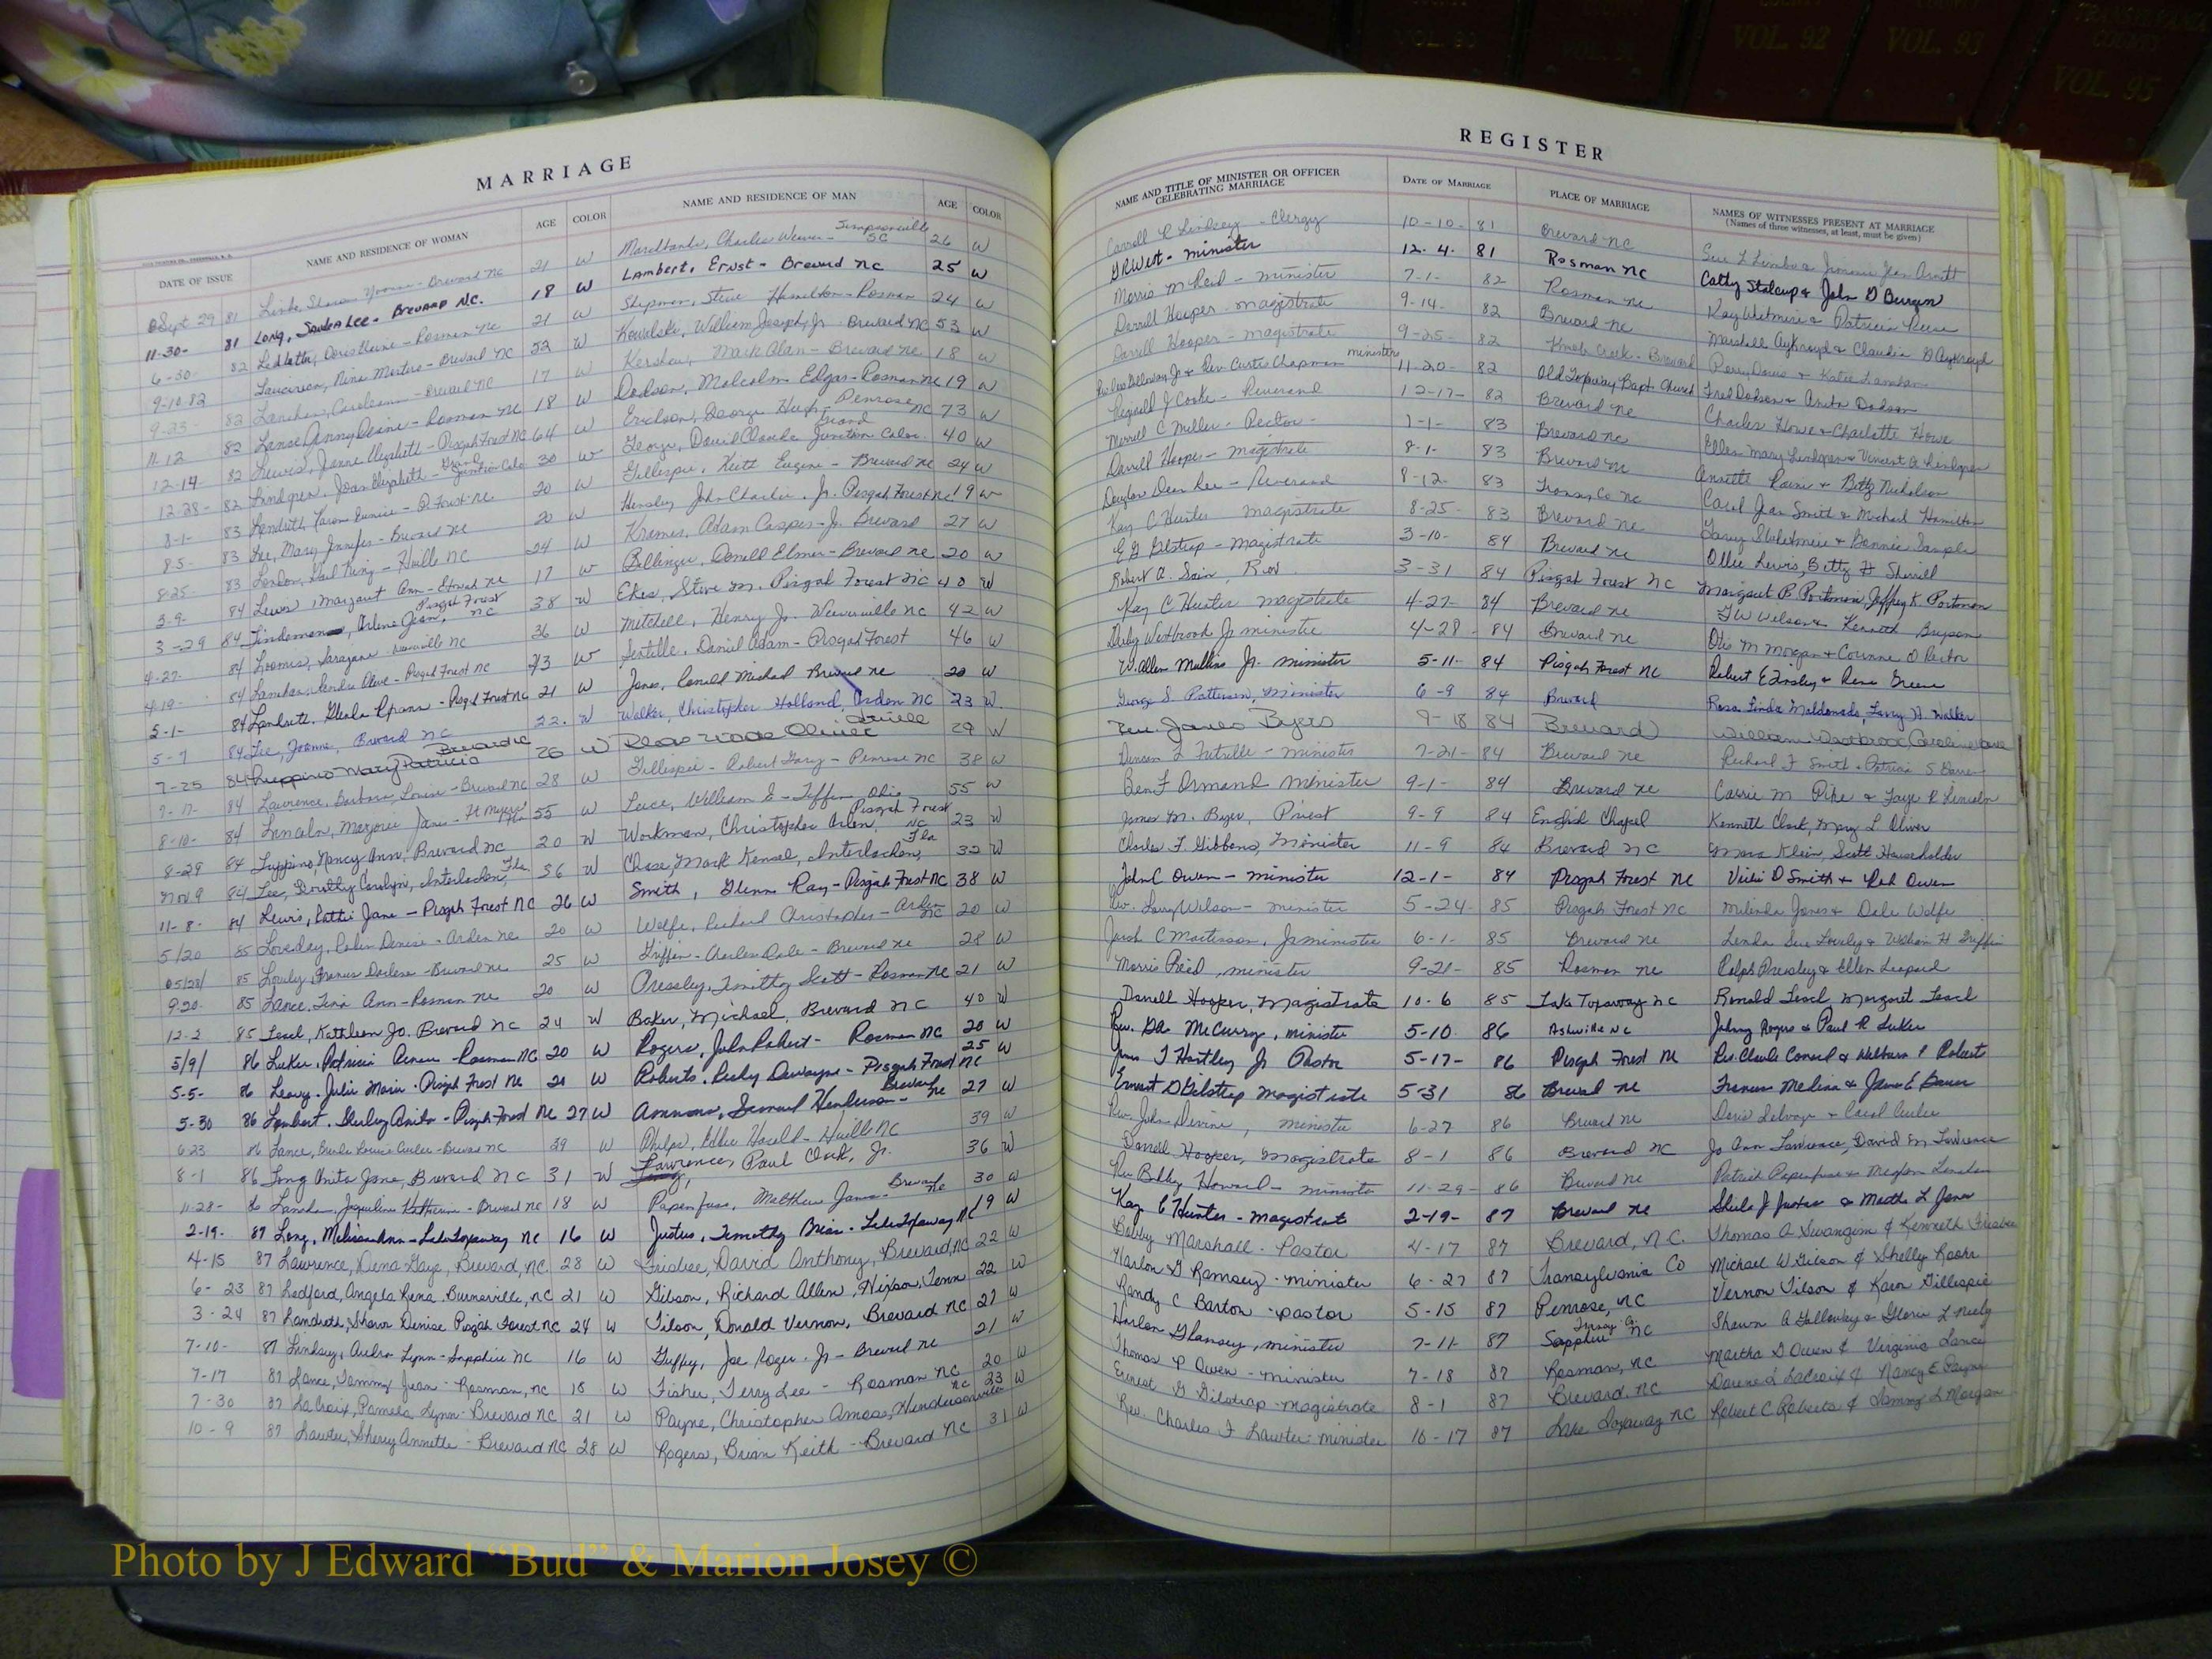 COUNTY VOL. 92
COUNTY VOL. 93
TRANSYLVANIA COUNTY VOL. 95
MARRIAGE
REGISTER
DATE OF ISSUE NAME AND RESIDENCE OF WOMAN AGE COLOR NAME AND RESIDENCE OF MAN AGE COLOR
NAME AND TITLE OF MINISTER OR OFFICER CELEBRATING MARRIAGE DATE OF MARRIAGE PLACE OF MARRIAGE NAMES OF WITNESSES PRESENT AT MARRIAGE
(Names of three witnesses, at least, must be given)
Sept 29 81 Brevard NC 21 W Charles Simpsonville SC 26 W Carroll Lindsey - Clergy 10-10- 81 Brevard NC
11-30- 81 Long, Lee - Brevard N.C. 18 W Lambert, Ernst - Brevard NC 25 W G R West - minister 12-4- 81 Rosman NC Cathy Stalcup & John D Burgin
6-30 82 Rosman NC 21 W Shipman, Steve Hamilton - Rosman 24 W Morris McReid - minister 7-1- 82 Rosman NC Patricia Reese
9-10 82 Nina - Brevard NC 52 W Kowalski, William Joseph, Jr Brevard NC 53 W Darrell Hooper - magistrate 9-14- 82 Brevard NC Marshall Aykroyd & Claudia D Aykroyd
9-23- 82 Brevard NC 17 W Kershaw, Mark Alan - Brevard NC 18 W Darrell Hooper - magistrate 9-25- 82 Brevard Perry Davis & Katie
11-12 82 Lance, Penny Elaine - Rosman NC 18 W Dodson, Malcolm Edgar - Rosman NC 19 W Rev Curtis Chapman ministers 11-20- 82 Old Toxaway Bapt Church Fred Dodson & Anita Dodson
12-14- 82 Lewis, Jenne Elizabeth - Pisgah Forest NC 64 W Erickson, George Hugh - Penrose NC 73 W Reginald J Cooke - Reverend 12-17- 82 Brevard NC Charles Howe & Charlotte Howe
12-28- 82 Lindgren, Joan Elizabeth - Grand Junction Colo 30 W George, David Claude Grand Junction Color. 40 W Merrill C Miller - Rector - 1-1- 83 Brevard NC Ellen Mary Lindgren & Vincent A Lindgren
8-1- 83 Karen Eunice - P. Forest NC 20 W Gillespie, Keith Eugene - Brevard NC 24 W Darrell Hooper - magistrate 8-1- 83 Brevard NC Annette & Betty Nicholson
8-5- 83 Lee, Mary Jennifer - Brevard NC 20 W Hensley John Charles, Jr. Pisgah Forest NC 19 W Douglas Dean Lee - Reverend 8-12- 83 Transy Co NC Carol Jean Smith & Michael Hamilton
8-25 83 London, Gail King - NC 24 W Kramer, Adam Casper - Jr. Brevard 27 W Kay C Hunter magistrate 8-25- 83 Brevard NC & Bonnie Sample
3-9- 84 Lewis, Margaret Ann - NC 17 W Billinger, Donell Elmer - Brevard NC 20 W E G Gilstrap - Magistrate 3-10- 84 Brevard NC Ollie Lewis, Betty H Sherrill
3-29 84 Arlene Jean, Pisgah Forest NC 38 W Steve M. Pisgah Forest NC 40 W Robert A. Sain, Rev. 3-31 84 Pisgah Forest NC Margaret B Portman, Jeffrey K Portman
4-27- 84 Loomis, Sarajane NC 36 W Mitchell, Henry Jr. Weaverville NC 42 W Kay C Hunter magistrate 4-27- 84 Brevard NC Kenneth Bryson
4-19- 84 Olive - Pisgah Forest NC 43 W Daniel Adam - Pisgah Forest 46 W Westbrook Jr minister 4-28- 84 Brevard NC Otis M Morgan & Corinne O Rector
5-1- 84 Landreth, Pisgah Forest NC 21 W Jones, Michael Brevard NC 20 W W Allen Mullins Jr. minister 5-11- 84 Pisgah Forest NC Robert E & Rene Greene
5-7 84 Lee, Joanne, Brevard NC 22 W Walker, Christopher Holland, Arden NC 23 W George S Patterson, Minister 6-9 84 Brevard Rosa Linda Maldonado, Larry H. Walker
7-25 84 Luppino Mary Patricia Brevard NC 26 W Oliver 29 W Rev. James Byers 9-18 84 Brevard William Westbrook
7-17- 84 Lawrence, Barbara Louise - Brevard NC 28 W Gillespie - Robert Gary - Penrose NC 38 W Duncan L - minister 7-21- 84 Brevard NC Richard F Smith & Patricia S
8-10- 84 Lincoln, Marjorie Jane - Ft Myers Fla 55 W William E - Tiffin Ohio 55 W Ben F Ormand minister 9-1- 84 Brevard NC Carrie M Pike & Faye R Lincoln
8-29 84 Luppino, Nancy Ann, Brevard NC 20 W Workman, Christopher Pisgah Forest NC 23 W James M. Byer, Priest 9-9 84 English Chapel Kenneth Clark, Mary L Oliver
Nov 9 84 Lee, Dorothy Carolyn, Interlachen, Fla. 36 W Chase, Mark Kensel, Interlachen, Fla 32 W Charles F Gibbens, Minister 11-9 84 Brevard NC Klein, Scott Householder
11-8- 84 Lewis, Pattie Jane - Pisgah Forest NC 26 W Smith, Glenn Ray - Pisgah Forest NC 38 W John C Owen - minister 12-1- 84 Pisgah Forest NC Vickie D Smith & Owen
5/20 85 Loveday, Robin Denise - Arden NC 20 W Wolfe, Richard Christopher - Arden NC 20 W Rev. Larry Wilson - minister 5-24- 85 Pisgah Forest NC Melinda Jones & Dale Wolfe
05/28/ 85 Frances Darlene - Brevard NC 25 W Griffin - Charles Dale - Brevard NC 28 W C Martinson, Jr minister 6-1- 85 Brevard NC Linda Sue & William H Griffin
9-20- 85 Lance, Tina Ann - Rosman NC 20 W Pressley, Timothy Scott - Rosman NC 21 W Morris Reid, minister 9-21- 85 Rosman NC Ralph Pressley & Ellen Leopard
12-2 85 Kathleen Jo. Brevard NC 24 W Baker, Michael, Brevard NC 40 W Darrell Hooper, Magistrate 10-6 85 Lake Toxaway NC Ronald Margaret
5/9/ 86 Luker, Patricia - Rosman NC 20 W Rogers, John Robert - Rosman NC 20 W Rev. McCurry, minister 5-10 86 Asheville NC Johnny Rogers & Paul R Luker
5-5- 86 Leary, Julie Marie - Pisgah Forest NC 20 W Roberts, Ricky Dewayne - Pisgah Forest NC 25 W James T Hartley Jr Pastor 5-17- 86 Pisgah Forest NC Rev. Charles Conard & Welborn P Roberts
5-30 86 Lambert, Shirley Anita - Pisgah Forest NC 27 W Ammons, Samuel Henderson - Brevard NC 27 W Ernest D Gilstrap Magistrate 5-31 86 Brevard NC Frances Medina & James E
6-23 86 Lance, Louise - Brevard NC 39 W Phelps, Harold - NC 39 W Rev. John Devine, minister 6-27 86 Brevard NC Doris & Carol
8-1 86 Long Anita Jane, Brevard NC 31 W Lawrence, Paul Clark, Jr. 36 W Darrell Hooper, Magistrate 8-1 86 Brevard NC Jo Ann Lawrence, David M Lawrence
11-28- 86 Jacqueline Katherine - Brevard NC 18 W Papenfuse, Matthew James - Brevard NC 30 W Rev Bobby Howard - minister 11-29- 86 Brevard NC Patrick Papenfuse &
2-19- 87 Long, Melissa Ann - Lake Toxaway NC 16 W Justus, Timothy Brian - Lake Toxaway NC 19 W Kay C Hunter - magistrate 2-19- 87 Brevard NC Sheila J Justus & Martha L Jones
4-15 87 Lawrence, Dena Gaye, Brevard, NC. 28 W Frisbee, David Anthony, Brevard, NC 22 W Bobby Marshall - Pastor 4-17 87 Brevard, N.C. Thomas A Swangim & Kenneth Frisbee
6-23 87 Ledford, Angela Rena, Burnsville, NC 21 W Gibson, Richard Allen, Hixson, Tenn 22 W Harlon G Ramsey - minister 6-27 87 Transylvania Co Michael W Gibson & Shelly
3-24 87 Landreth, Sharon Denise Pisgah Forest NC 24 W Tilson, Donald Vernon, Brevard NC 27 W Randy C Barton - pastor 5-15 87 Penrose, NC Vernon Tilson & Karen Gillespie
7-10- 87 Lindsay, Audra Lynn - Sapphire NC 16 W Guffey, Joe Roger - Jr - Brevard NC 21 W Harlon G Ramsey, minister 7-11- 87 Sapphire Transy. Co. NC Shawn A Galloway & Gloria L Neely
7-17 87 Lance, Tammy Jean - Rosman, NC 18 W Fisher, Terry Lee - Rosman NC 20 W Thomas P Owen - minister 7-18 87 Rosman, NC Martha D Owen & Virginia Lance
7-30 87 LaCroix, Pamela Lynn - Brevard NC 21 W Payne, Christopher Amose, Hendersonville NC 23 W Ernest G Gilstrap - magistrate 8-1 87 Brevard, NC Darene L LaCroix & Nancy E Payne
10-9 87 Lawter, Sherry Annette - Brevard NC 28 W Rogers, Brian Keith - Brevard NC 31 W Rev. Charles F Lawter - minister 10-17 87 Lake Toxaway NC Robert C Roberts & Tammy L Morgan
Photo by J Edward “Bud” & Marion Josey ©